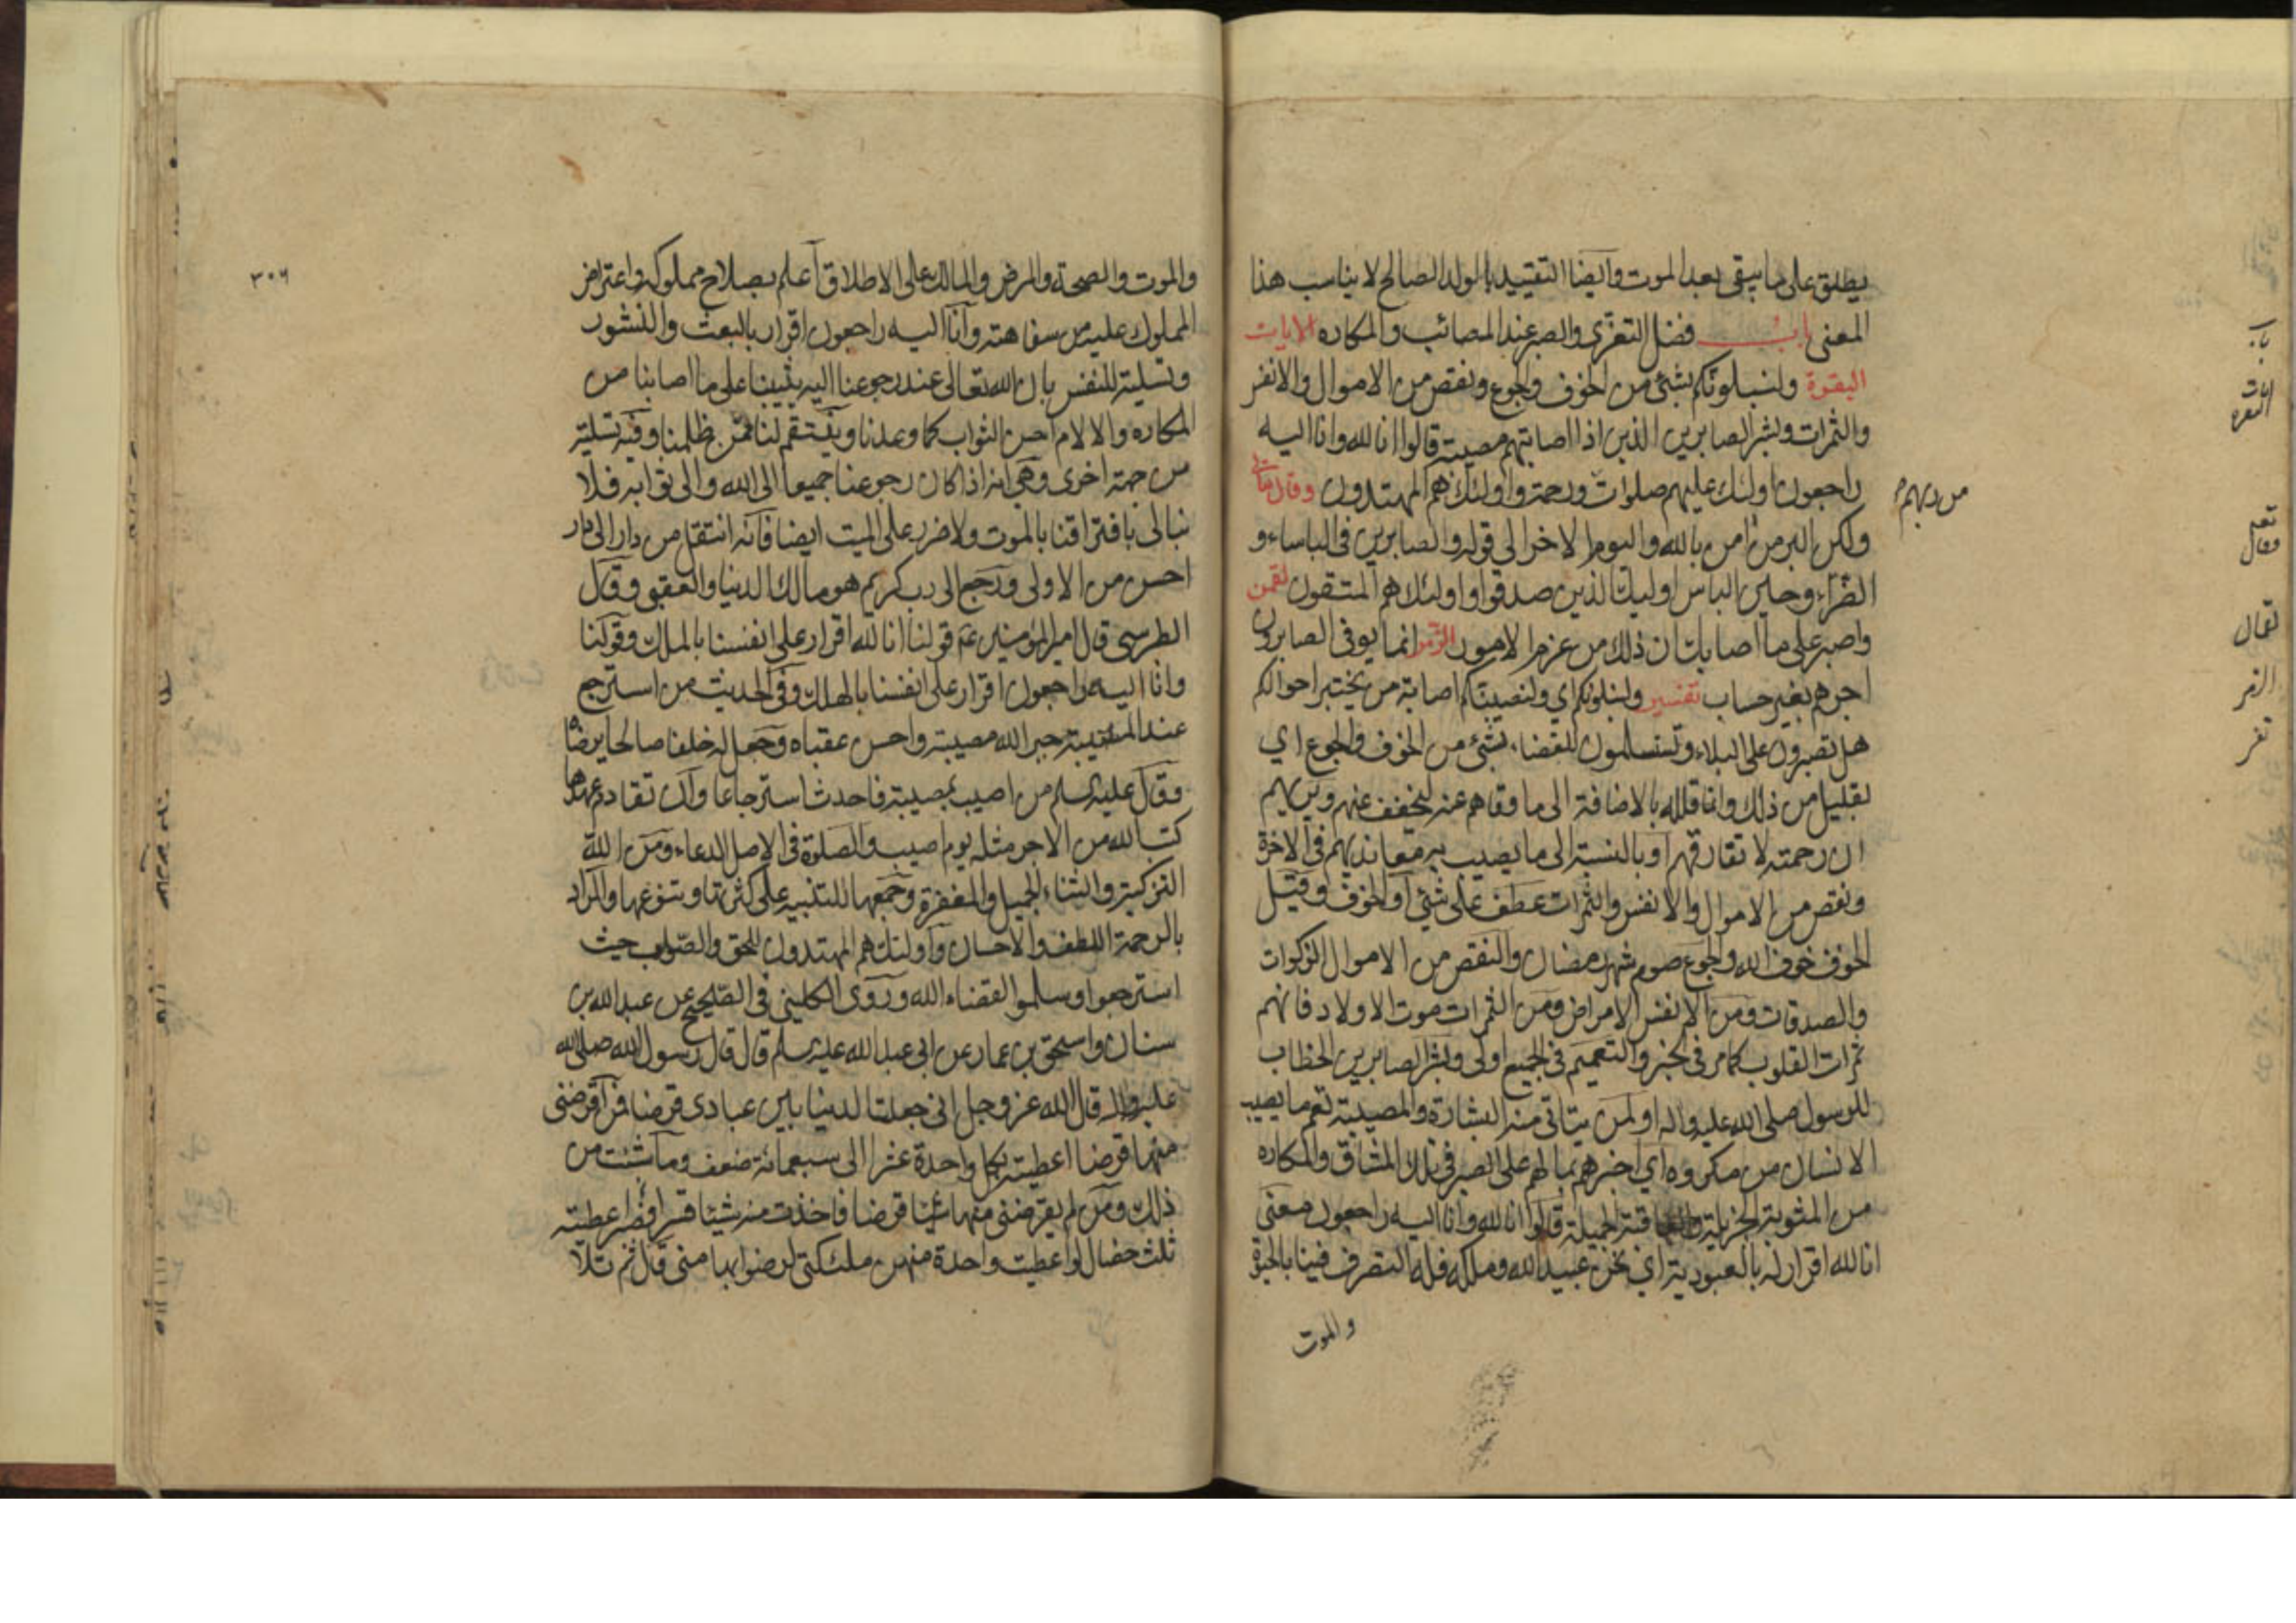 يطلق على ما يبقى بعد الموت وايضا التقييد بالولد الصالح لا يناسب هذا
المعنى باب فضل التعزى والصبر عند المصائب والمكاره الايات
البقرة ولنبلونكم بشئ من الخوف والجوع ونقص من الاموال والانفس
والثمرات وبشر الصابرين الذين اذا اصابتهم مصيبة قالوا انا لله وانا اليه
راجعون اولئك عليهم صلوات ورحمة واولئك هم المهتدون وقال تعالى
من ربهم
ولكن البر من امن بالله واليوم الاخر الى قوله والصابرين فى الباساء و
الضراء وحين الباس اوليك الذين صدقوا واولئك هم المتقون لقمن
واصبر على ما اصابك ان ذلك من عزم الامور الزمر انما يوفى الصابرون
اجرهم بغير حساب تفسير ولنبلونكم اي ولنصيبنكم اصابة من يختبر احوالكم
هل تصبرون على البلاء وتستسلمون للقضاء بشئ من الخوف والجوع اي
بقليل من ذلك وانما قلله بالاضافة الى ما وقاهم عنه ليخفف عنهم ويريهم
ان رحمته لا تفارقهم او بالنسبة الى ما يصيب به معانديهم فى الاخرة
ونقص من الاموال والانفس والثمرات عطف على شئ او الخوف وقيل
الخوف خوف الله والجوع صوم شهر رمضان والنقص من الاموال الزكوات
والصدقات ومن الانفس الامراض ومن الثمرات موت الاولاد فانهم
ثمرات القلوب كما مر فى الخبر والتعميم فى الجميع اولى وبشر الصابرين الخطاب
للرسول صلى الله عليه واله او لمن يتاتى منه البشارة والمصيبة تعم ما يصيب
الانسان من مكروه اي اخبرهم بما لهم على الصبر فى تلك المشاق والمكاره
من المثوبة الجزيلة والعاقبة الجميلة قالوا انا لله وانا اليه راجعون معنى
انا لله اقرار له بالعبودية اي نحن عبيد الله وملكه فله التصرف فينا بالحيوة
والموت
باب
ايات
البقرة
تعالى
وقال
لقمان
الزمر
تفسير
٣٠٦
والموت والصحة والمرض والمالك على الاطلاق اعلم بصلاح مملوكه واعتراض
المملوك عليه من سفاهته وانا اليه راجعون اقرار بالبعث والنشور
وتسلية للنفس بان الله تعالى عند رجوعنا اليه يثيبنا على ما اصابنا من
المكاره والالام احسن الثواب كما وعدنا وينتقم لنا ممن ظلمنا وفيه تسلية
من جهة اخرى وهى انه اذا كان رجوعنا جميعا الى الله والى ثوابه فلا
نبالى بافتراقنا بالموت ولا ضرر على الميت ايضا فانه انتقل من دار الى دار
احسن من الاولى ورجع الى رب كريم هو مالك الدنيا والعقبى وقال
الطبرسى قال امير المؤمنين ع قولنا انا لله اقرار على انفسنا بالملك وقولنا
وانا اليه راجعون اقرار على انفسنا بالهلك وفى الحديث من استرجع
عند المصيبة جبر الله مصيبته واحسن عقباه وجعل له خلفا صالحا يرضاه
وقال عليه السلم من اصيب بمصيبة فاحدث استرجاعا وان تقادم عهدها
كتب الله من الاجر مثله يوم اصيب والصلوة فى الاصل الدعاء ومن الله
التزكية والثناء الجميل والمغفرة وجمعها للتنبيه على كثرتها وتنوعها والمراد
بالرحمة اللطف والاحسان واولئك هم المهتدون للحق والصواب حيث
استرجعوا وسلموا لقضاء الله وروى الكلينى فى الصحيح عن عبد الله بن
سنان واسحق بن عمار عن ابى عبد الله عليه السلم قال قال رسول الله صلى الله
عليه واله قال الله عز وجل انى جعلت الدنيا بين عبادى قرضا فمن اقرضنى
منها قرضا اعطيته بكل واحدة عشرا الى سبعمائة ضعف وما شئت من
ذلك ومن لم يقرضنى منها قرضا فاخذت منه شيئا قسرا فصبر اعطيته
ثلث خصال لو اعطيت واحدة منهن ملئكتى لرضوا بها منى قال ثم تلا